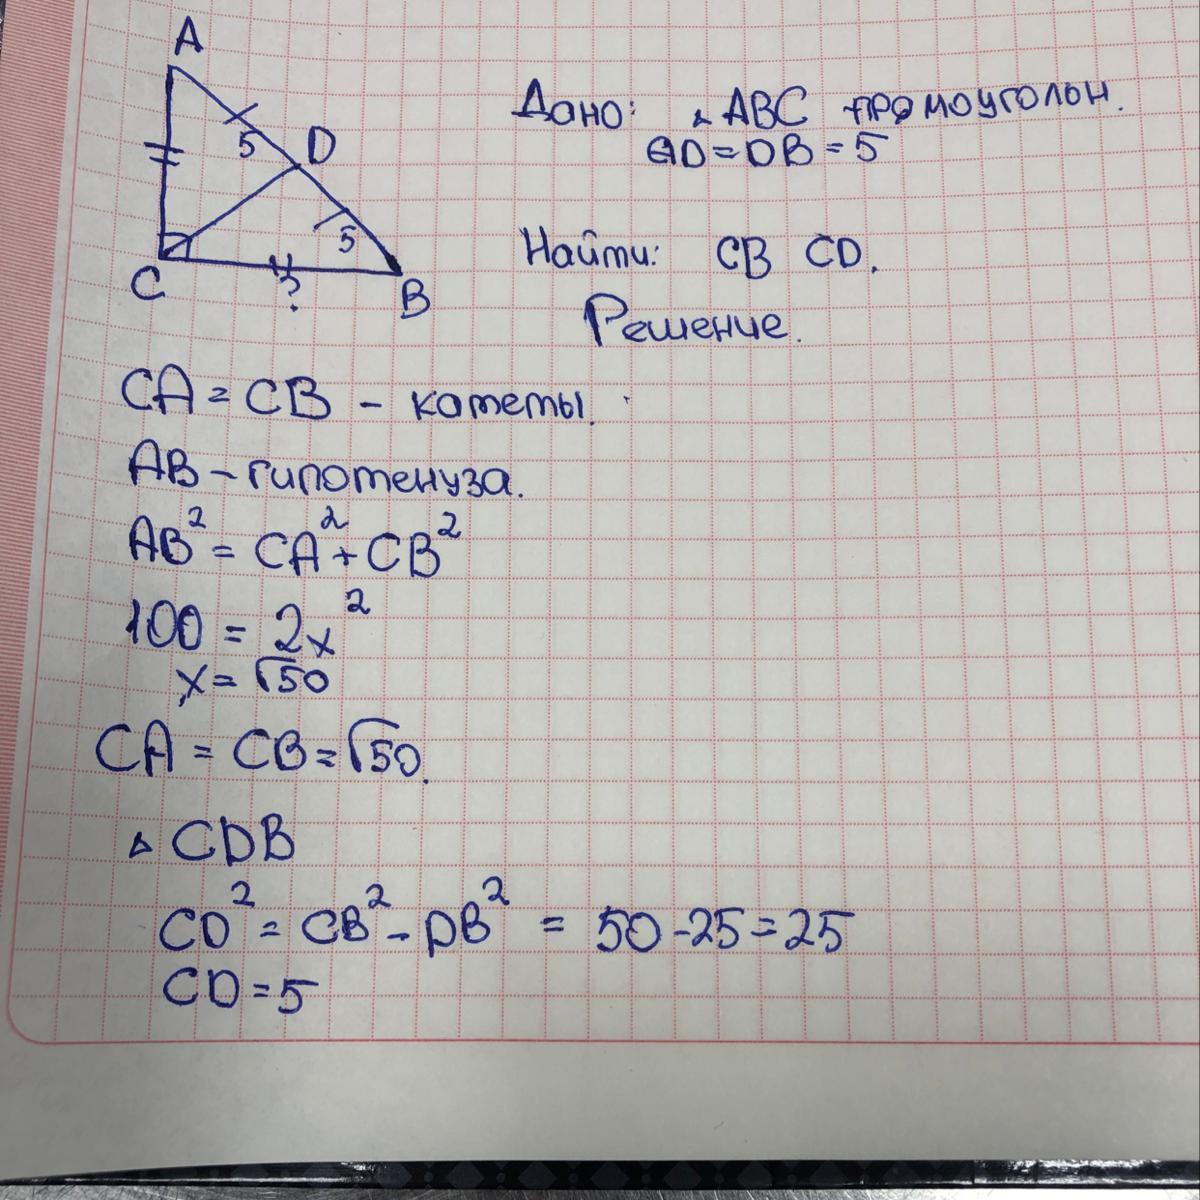 A
5 D
C
5
?
B
Дано: △ ABC прямоуголон.
AD = DB = 5
Найти: CB CD.
Решение.
CA = CB - катеты.
AB - гипотенуза.
AB² = CA² + CB²
100 = 2x²
x = √50
CA = CB = √50.
△ CDB
CD² = CB² - DB² = 50 - 25 = 25
CD = 5